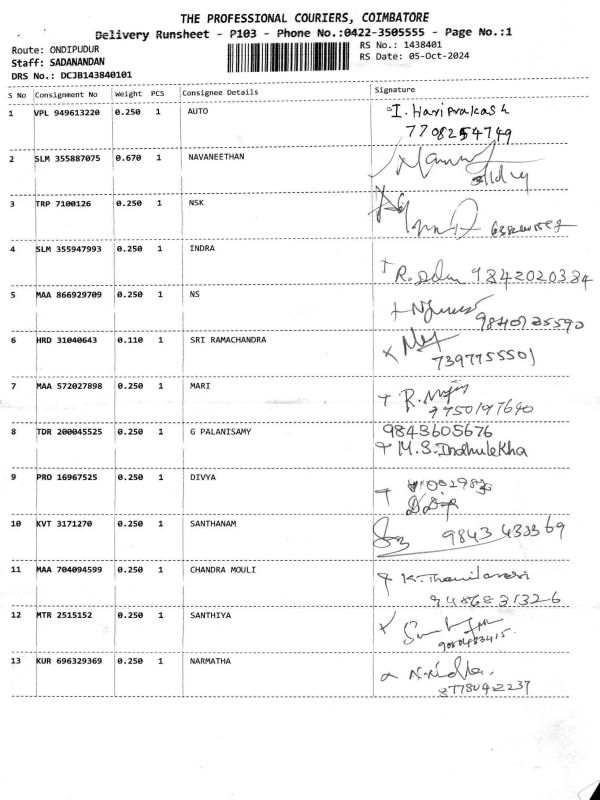 THE PROFESSIONAL COURIERS, COIMBATORE
Delivery Runsheet - P103 - Phone No.:0422-3505555 - Page No.:1
Route: ONDIPUDUR
RS No.: 1438401
Staff: SADANANDAN
RS Date: 05-Oct-2024
DRS No.: DCJB143840101
S No Consignment No Weight PCS Consignee Details Signature
1 VPL 949613220 0.250 1 AUTO I. Hariprakash
7708254749
2 SLM 355887075 0.670 1 NAVANEETHAN
3 TRP 7100126 0.250 1 NSK
4 SLM 355947993 0.250 1 INDRA
R. 9842020384
5 MAA 866929709 0.250 1 NS
6 HRD 31040643 0.110 1 SRI RAMACHANDRA
7397755501
7 MAA 572027898 0.250 1 MARI
R.
8 TDR 200045525 0.250 1 G PALANISAMY 9843605676
M.S. Indhulekha
9 PRO 16967525 0.250 1 DIVYA
10 KVT 3171270 0.250 1 SANTHANAM
11 MAA 704094599 0.250 1 CHANDRA MOULI K. Thamilarasi
12 MTR 2515152 0.250 1 SANTHIYA
13 KUR 696329369 0.250 1 NARMATHA